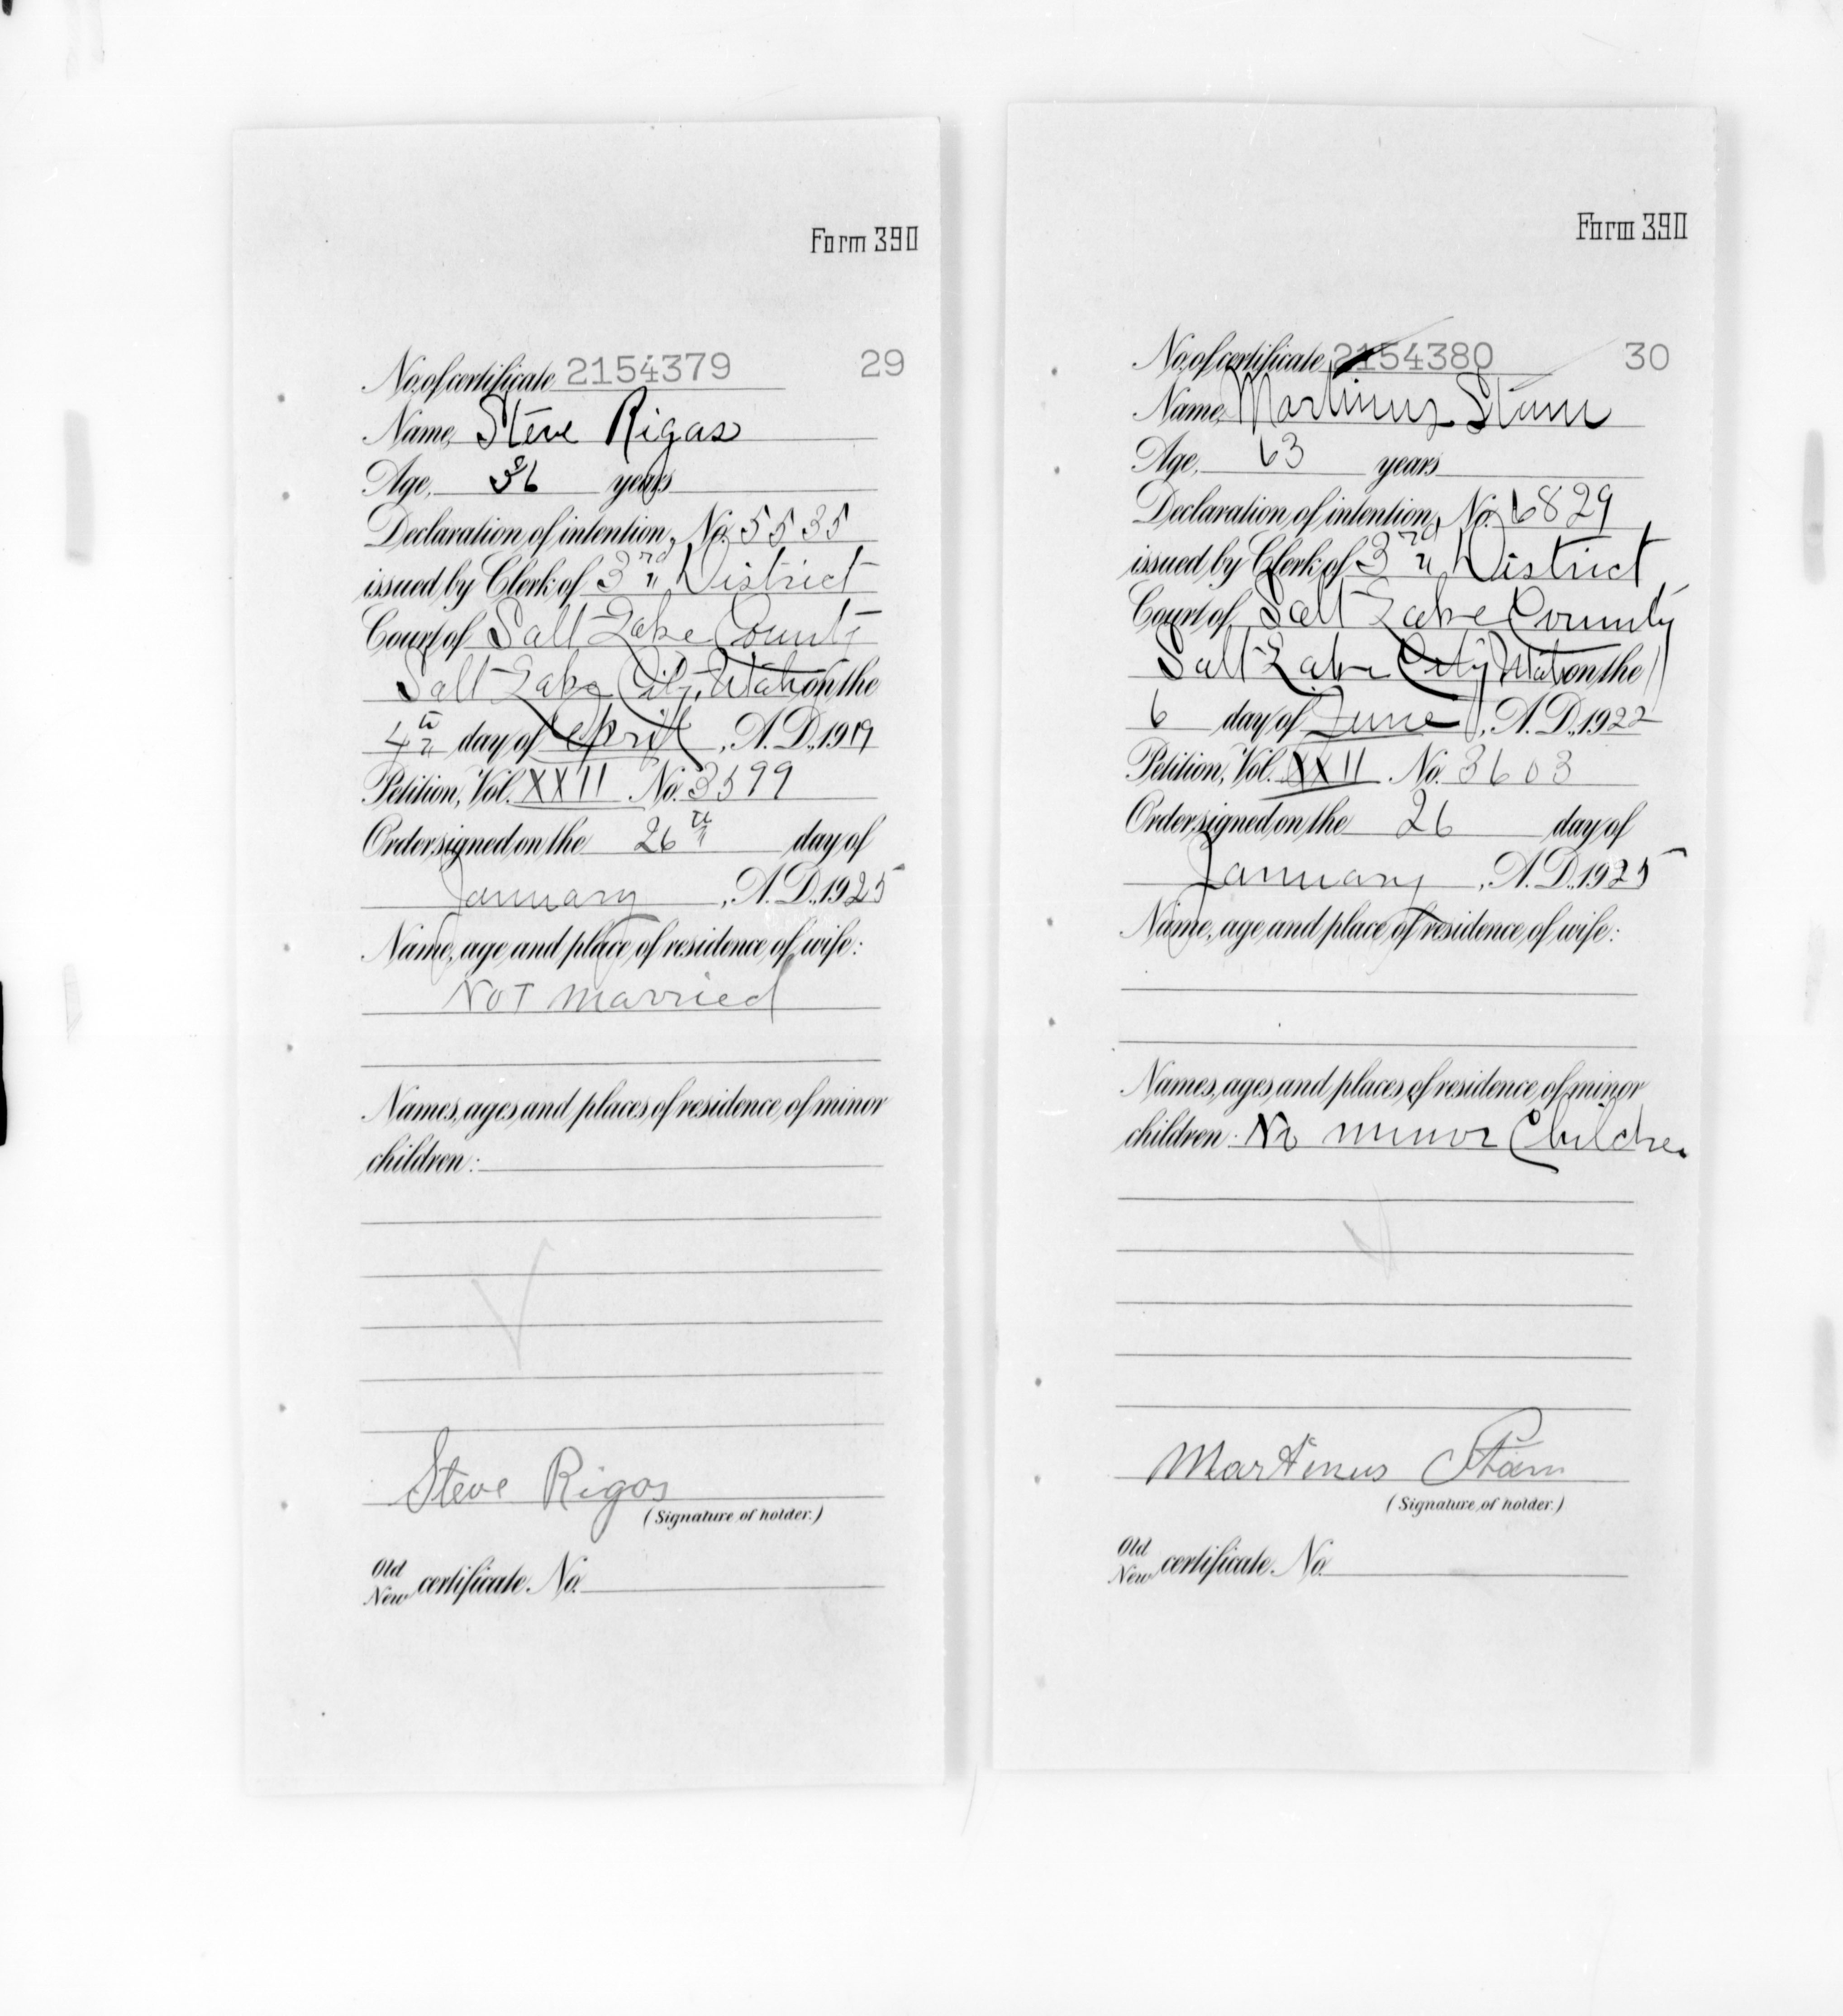 Form 390
No. of certificate 2154379 29
Name, Steve Rigas
Age, 36 years
Declaration of intention, No. 5535
issued by Clerk of 3rd District
Court of Salt Lake County
Salt Lake City, Utah on the
4th day of April, A. D., 1919
Petition, Vol. XXII No. 3599
Order signed on the 26th day of
January, A. D., 1925
Name, age and place of residence of wife:
Not married
Names, ages and places of residence of minor
children:
Steve Rigos
(Signature of holder.)
Old
New certificate No.
Form 390
No. of certificate 2154380 30
Name, Martinus Stam
Age, 63 years
Declaration of intention, No. 6829
issued by Clerk of 3rd District
Court of Salt Lake County
Salt Lake City Utah on the
6 day of June, A. D., 1922
Petition, Vol. XXII No. 3603
Order signed on the 26 day of
January, A. D., 1925
Name, age and place of residence of wife:
Names, ages and places of residence of minor
children: No minor Childre
Martinus Stam
(Signature of holder.)
Old
New certificate No.